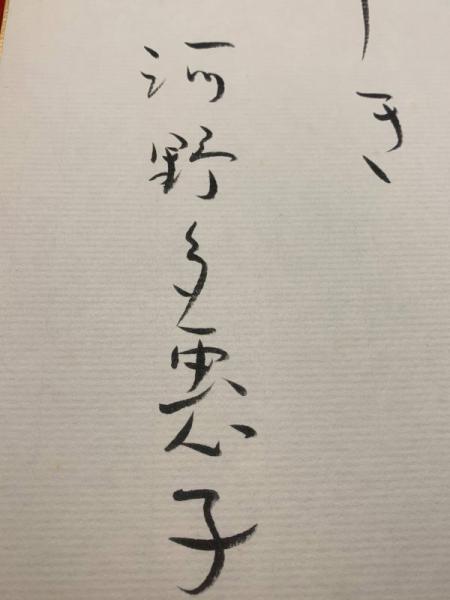 き
河野多惠子